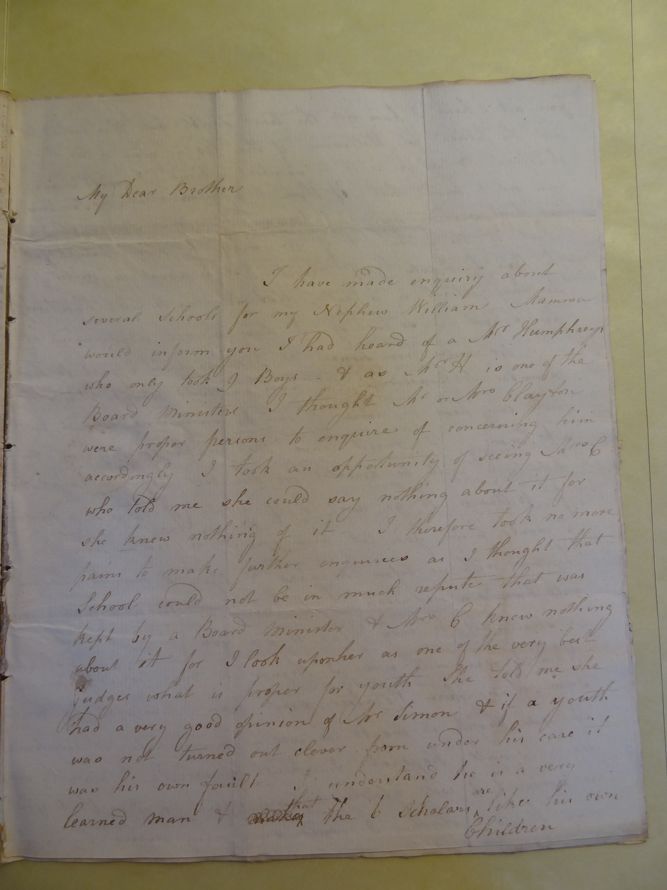 My Dear Brother
I have made enquiry about
several Schools for my Nephew William Mamma
would inform you I had heard of a Mr Humphreys
who only took 9 Boys - & as Mr H is one of the
Board Ministers I thought Mr or Mrs Clayton
were proper persons to enquire of concerning him
accordingly I took an oppotunity of seeing Mrs C
who told me she could say nothing about it for
she knew nothing of it I therefore took no more
pains to make further enquiries as I thought that
School could not be in much repute that was
kept by a Board Minister & Mrs C knew nothing
about it for I look uponher as one of the very best
judges what is proper for youth She told me she
had a very good opinion of Mr Simon & if a youth
was not turned out clever from under his care it
was his own fault I understand he is a very
learned man & that the 6 Scholars are like his own
Children